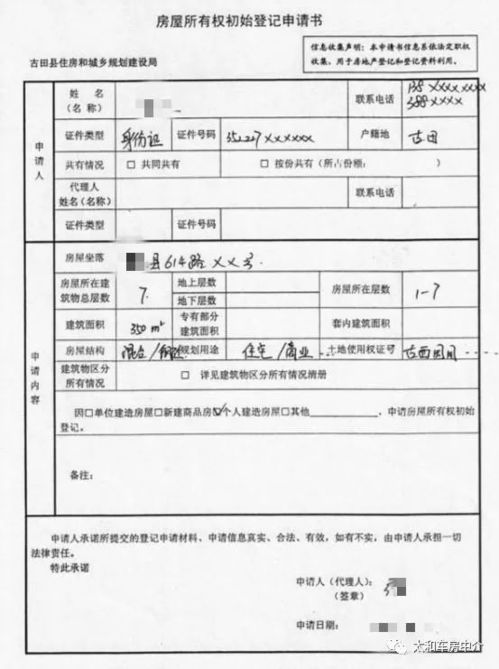 房屋所有权初始登记申请书
信息收集声明：本申请书信息系依法定职权
收集，用于房地产登记和登记资料利用。
古田县住房和城乡规划建设局
申请人
姓 名
（名 称）
联系电话
138 xxxxxxxx
388xxxx
证件类型 身份证 证件号码 352227xxxxxx 户籍地 古田
共有情况 □ 共同共有 □ 按份共有（所占份额： ）
代理人
姓名(名称)
联系电话
证件类型 证件号码
申请内容
房屋坐落 县614路 xx号.
房屋所在建
筑物总层数
7.
地上层数
地下层数
房屋所在层数 1-7
建筑面积 350m²
专有部分
建筑面积
套内建筑面积
房屋结构 混合/ 规划用途 住宅/商业 土地使用权证号 古西国用
建筑物区分
所有情况
□ 详见建筑物区分所有情况清册
因□单位建造房屋□新建商品房☑个人建造房屋□其他____________，申请房屋所有权初始
登记。
备注：
申请人承诺所提交的登记申请材料、申请信息真实、合法、有效，如有不实，由申请人承担一切
法律责任。
特此承诺
申请人（代理人）：
（签章）
申请日期：
太和车房中介